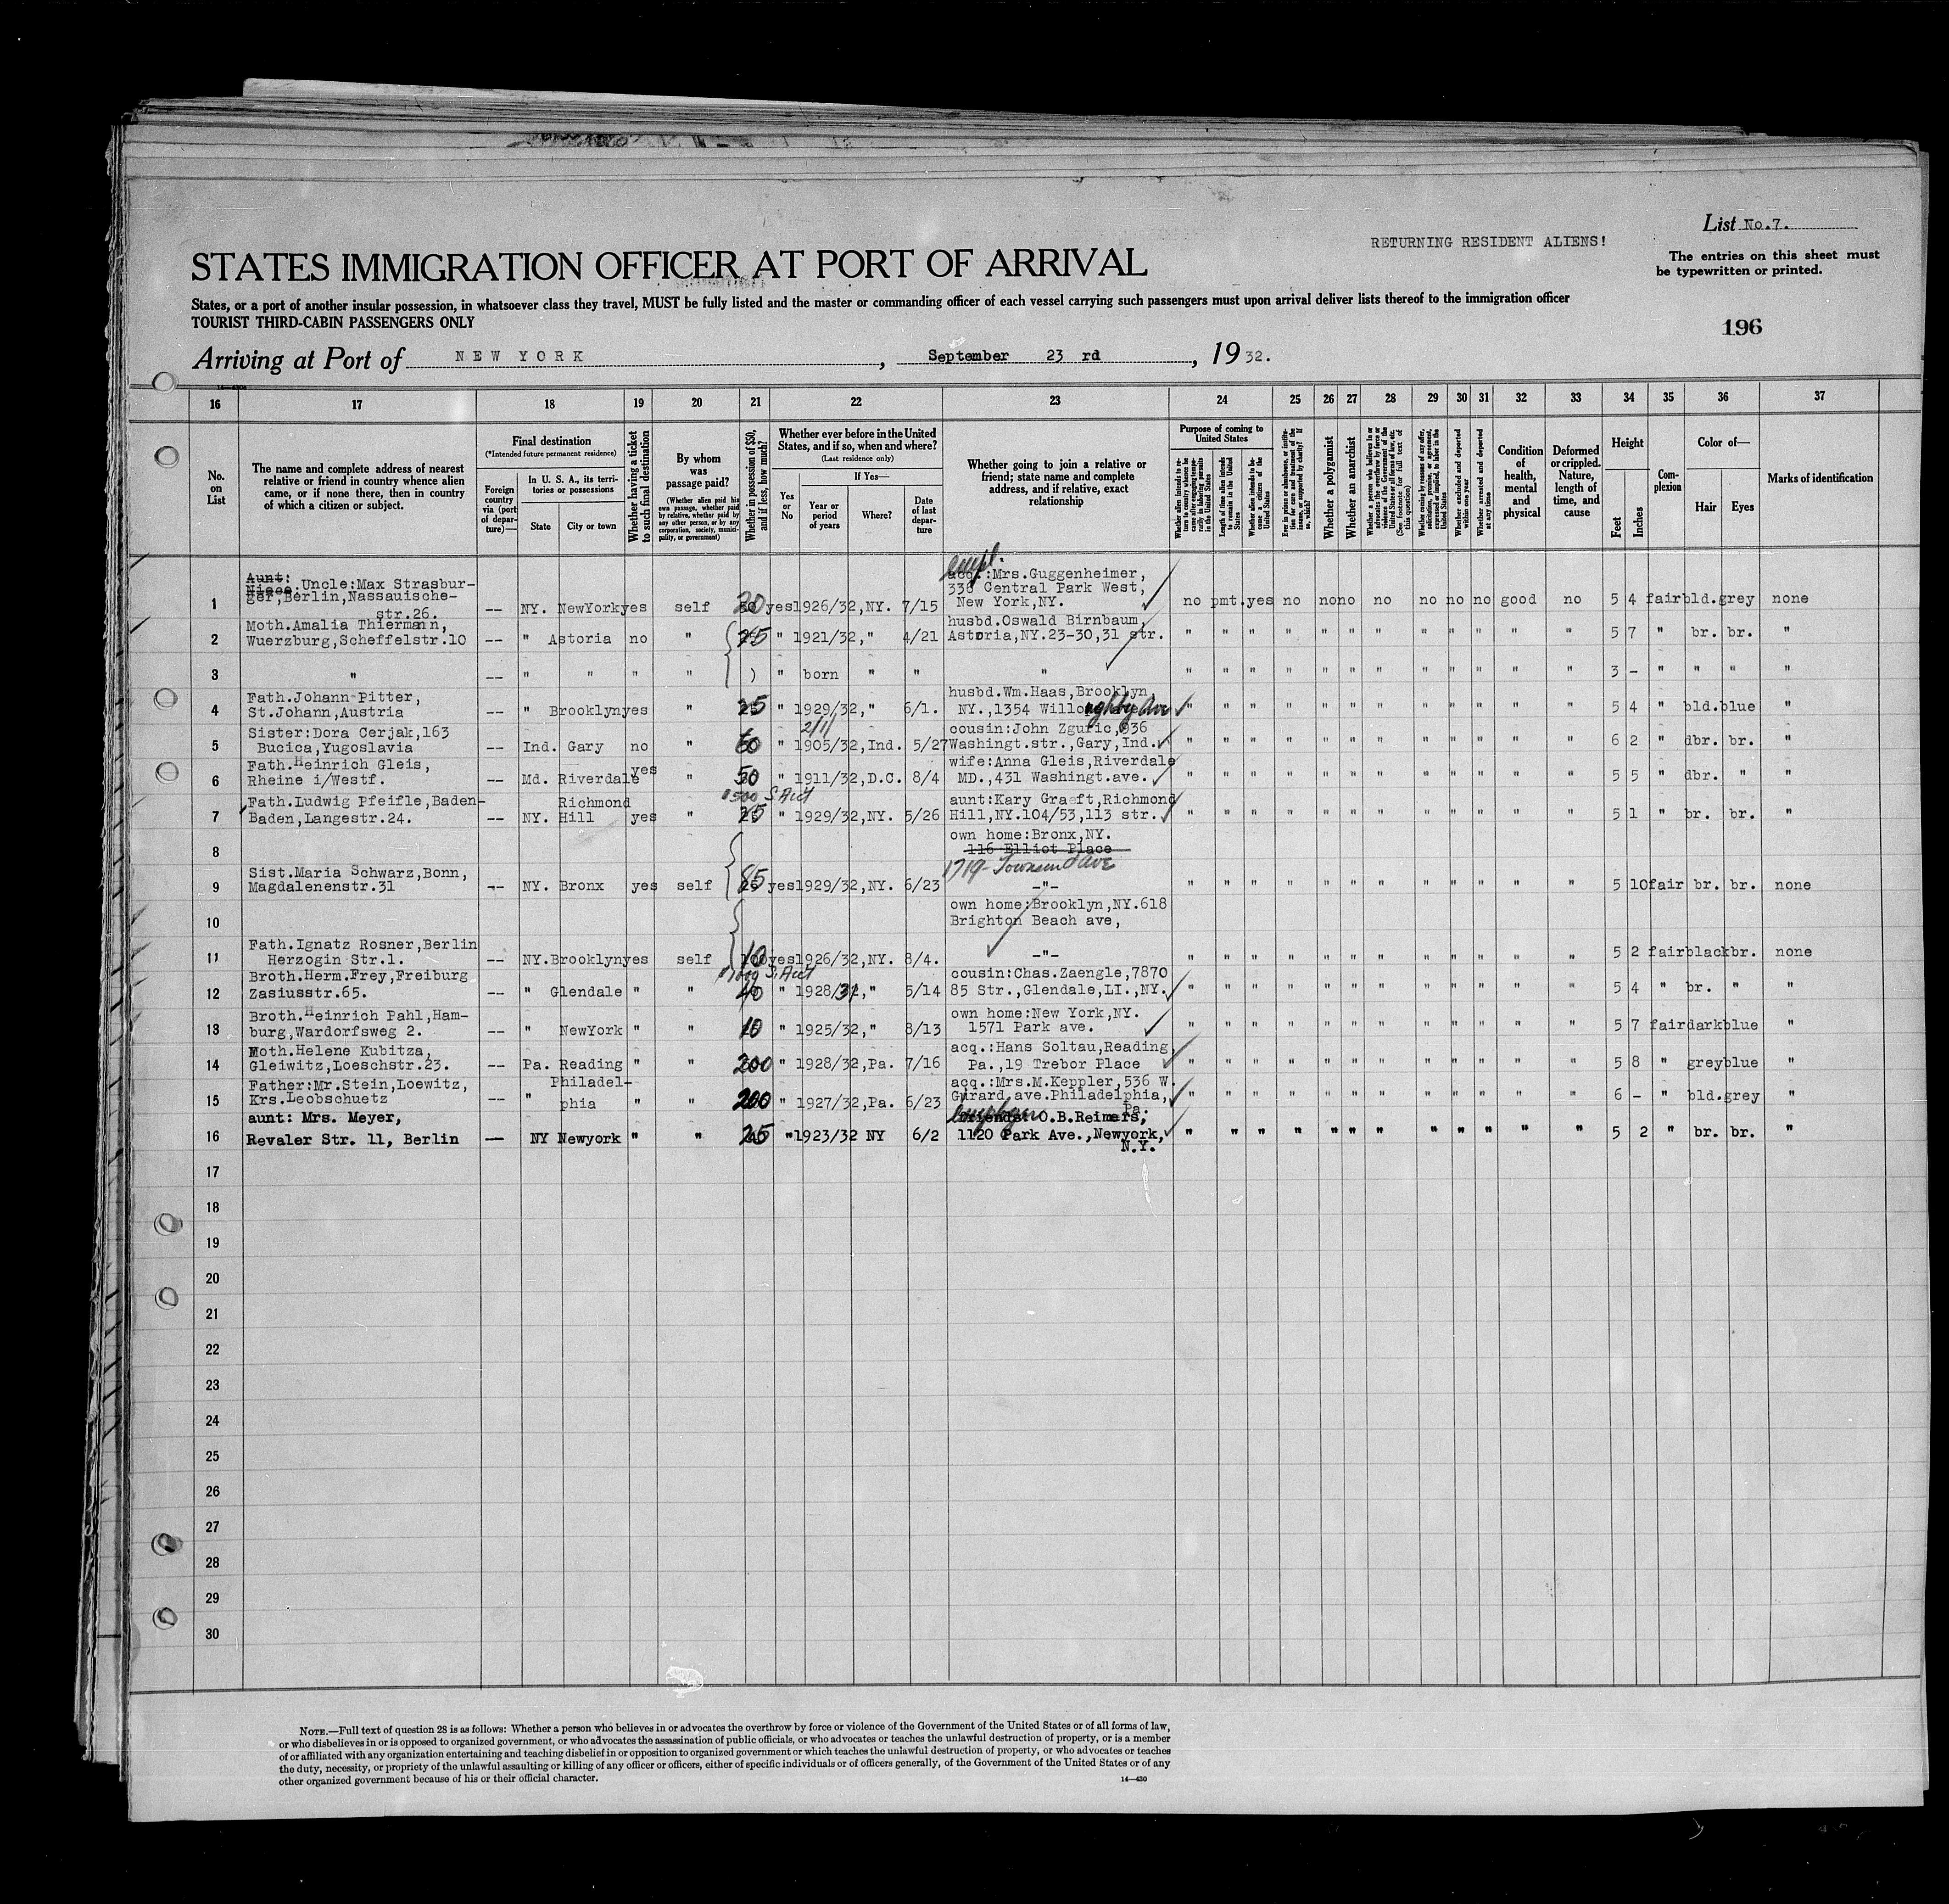 List No.7.
RETURNING RESIDENT ALIENS!
STATES IMMIGRATION OFFICER AT PORT OF ARRIVAL
The entries on this sheet must
be typewritten or printed.
States, or a port of another insular possession, in whatsoever class they travel, MUST be fully listed and the master or commanding officer of each vessel carrying such passengers must upon arrival deliver lists thereof to the immigration officer
TOURIST THIRD-CABIN PASSENGERS ONLY
196
Arriving at Port of NEW YORK, September 23 rd, 19 32.
16 17 18 19 20 21 22 23 24 25 26 27 28 29 30 31 32 33 34 35 36 37
No. on List
The name and complete address of nearest
relative or friend in country whence alien
came, or if none there, then in country
of which a citizen or subject.
Final destination
(*Intended future permanent residence)
Foreign country via (port of departure)—
In U. S. A., its territories or possessions
State
City or town
Whether having a ticket to such final destination
By whom was passage paid?
(Whether alien paid his own passage, whether paid by relative, whether paid by any other person, or by any corporation, society, municipality, or government)
Whether in possession of $50, and if less, how much?
Whether ever before in the United
States, and if so, when and where?
(Last residence only)
If Yes—
Yes or No
Year or period of years
Where?
Date of last departure
Whether going to join a relative or
friend; state name and complete
address, and if relative, exact
relationship
Purpose of coming to United States
Whether alien intends to return to country whence he came after engaging temporarily in laboring pursuits in the United States
Length of time alien intends to remain in the United States
Whether alien intends to become a citizen of the United States
Ever in prison or almshouse, or institution for care and treatment of the insane, or supported by charity? If so, which?
Whether a polygamist
Whether an anarchist
Whether a person who believes in or advocates the overthrow by force or violence of the Government of the United States or all forms of law, etc. (See footnote for full text of this question)
Whether coming by reasons of any offer, solicitation, promise, or agreement, expressed or implied, to labor in the United States
Whether excluded and deported within one year
Whether arrested and deported at any time
Condition of health, mental and physical
Deformed or crippled. Nature, length of time, and cause
Height
Feet
Inches
Complexion
Color of—
Hair
Eyes
Marks of identification
empl.
Aunt:
Niece. Uncle:Max Strasbur- acq.:Mrs.Guggenheimer,
ger,Berlin,Nassauische- 336 Central Park West,
1 str.26. -- NY. NewYork yes self 20 yes 1926/32,NY. 7/15 New York,NY. no pmt.yes no no no no no no no good no 5 4 fair bld.grey none
Moth.Amalia Thiermann, husbd.Oswald Birnbaum,
2 Wuerzburg,Scheffelstr.10 -- " Astoria no " 25 " 1921/32," 4/21 Astoria,NY.23-30,31 str. " " " " " " " " " " " " 5 7 " br. br. "
3 " -- " " " " ) " born " " " " " " " " " " " " " " " 3 - " " " "
Fath.Johann Pitter, husbd.Wm.Haas,Brooklyn,
4 St.Johann,Austria -- " Brooklyn yes " 25 " 1929/32," 6/1. NY.,1354 Willoughby Ave " " " " " " " " " " " " 5 4 " bld.blue "
2/11
Sister:Dora Cerjak,163 cousin:John Zguric,936
5 Bucica,Yugoslavia -- Ind. Gary no " 60 " 1905/32,Ind. 5/27 Washingt.str.,Gary,Ind. " " " " " " " " " " " " 6 2 " dbr. br. "
Fath.Heinrich Gleis, wife:Anna Gleis,Riverdale
6 Rheine i/Westf. -- Md. Riverdale yes " 50 " 1911/32,D.C. 8/4 MD.,431 Washingt.ave. " " " " " " " " " " " " 5 5 " dbr. " "
$500 S.Acct
Fath.Ludwig Pfeifle,Baden- Richmond aunt:Kary Graeft,Richmond
7 Baden,Langestr.24. -- NY. Hill yes " 25 " 1929/32,NY. 5/26 Hill,NY.104/53,113 str. " " " " " " " " " " " " 5 1 " br. br. "
own home:Bronx,NY.
8 116 Elliot Place
1719-Townsend Ave
Sist.Maria Schwarz,Bonn,
9 Magdalenenstr.31 -- NY. Bronx yes self 85 yes 1929/32,NY. 6/23 -"- " " " " " " " " " " " " 5 10 fair br. br. none
own home:Brooklyn,NY.618
10 Brighton Beach ave,
Fath.Ignatz Rosner,Berlin
11 Herzogin Str.1. -- NY.Brooklyn yes self 10 yes 1926/32,NY. 8/4. -"- " " " " " " " " " " " " 5 2 fair black br. none
$1000 S.Acct
Broth.Herm.Frey,Freiburg cousin:Chas.Zaengle,7870
12 Zasiusstr.65. -- " Glendale " " 40 " 1928/32," 5/14 85 Str.,Glendale,LI.,NY. " " " " " " " " " " " " 5 4 " br. " "
Broth.Heinrich Pahl,Ham- own home:New York,NY.
13 burg,Wardorfsweg 2. -- " NewYork " " 10 " 1925/32," 8/13 1571 Park ave. " " " " " " " " " " " " 5 7 fair dark blue "
Moth.Helene Kubitza, acq.:Hans Soltau,Reading,
14 Gleiwitz,Loeschstr.23. -- Pa. Reading " " 200 " 1928/32,Pa. 7/16 Pa.,19 Trebor Place " " " " " " " " " " " " 5 8 " grey blue "
Father:Mr.Stein,Loewitz, Philadel- acq.:Mrs.M.Keppler,536 W.
15 Krs.Leobschuetz -- " phia " " 200 " 1927/32,Pa. 6/23 Girard ave.Philadelphia, Pa. " " " " " " " " " " " " 6 - " bld.grey "
aunt: Mrs. Meyer, friend: O.B.Reimers,
16 Revaler Str. 11, Berlin -- NY Newyork " " 25 " 1923/32 NY 6/2 1120 Park Ave.,Newyork, " " " " " " " " " " " " 5 2 " br. br. "
N.Y.
17
18
19
20
21
22
23
24
25
26
27
28
29
30
NOTE.—Full text of question 28 is as follows: Whether a person who believes in or advocates the overthrow by force or violence of the Government of the United States or of all forms of law,
or who disbelieves in or is opposed to organized government, or who advocates the assassination of public officials, or who advocates or teaches the unlawful destruction of property, or is a member
of or affiliated with any organization entertaining and teaching disbelief in or opposition to organized government or which teaches the unlawful destruction of property, or who advocates or teaches
the duty, necessity, or propriety of the unlawful assaulting or killing of any officer or officers, either of specific individuals or of officers generally, of the Government of the United States or of any
other organized government because of his or their official character.
14—430